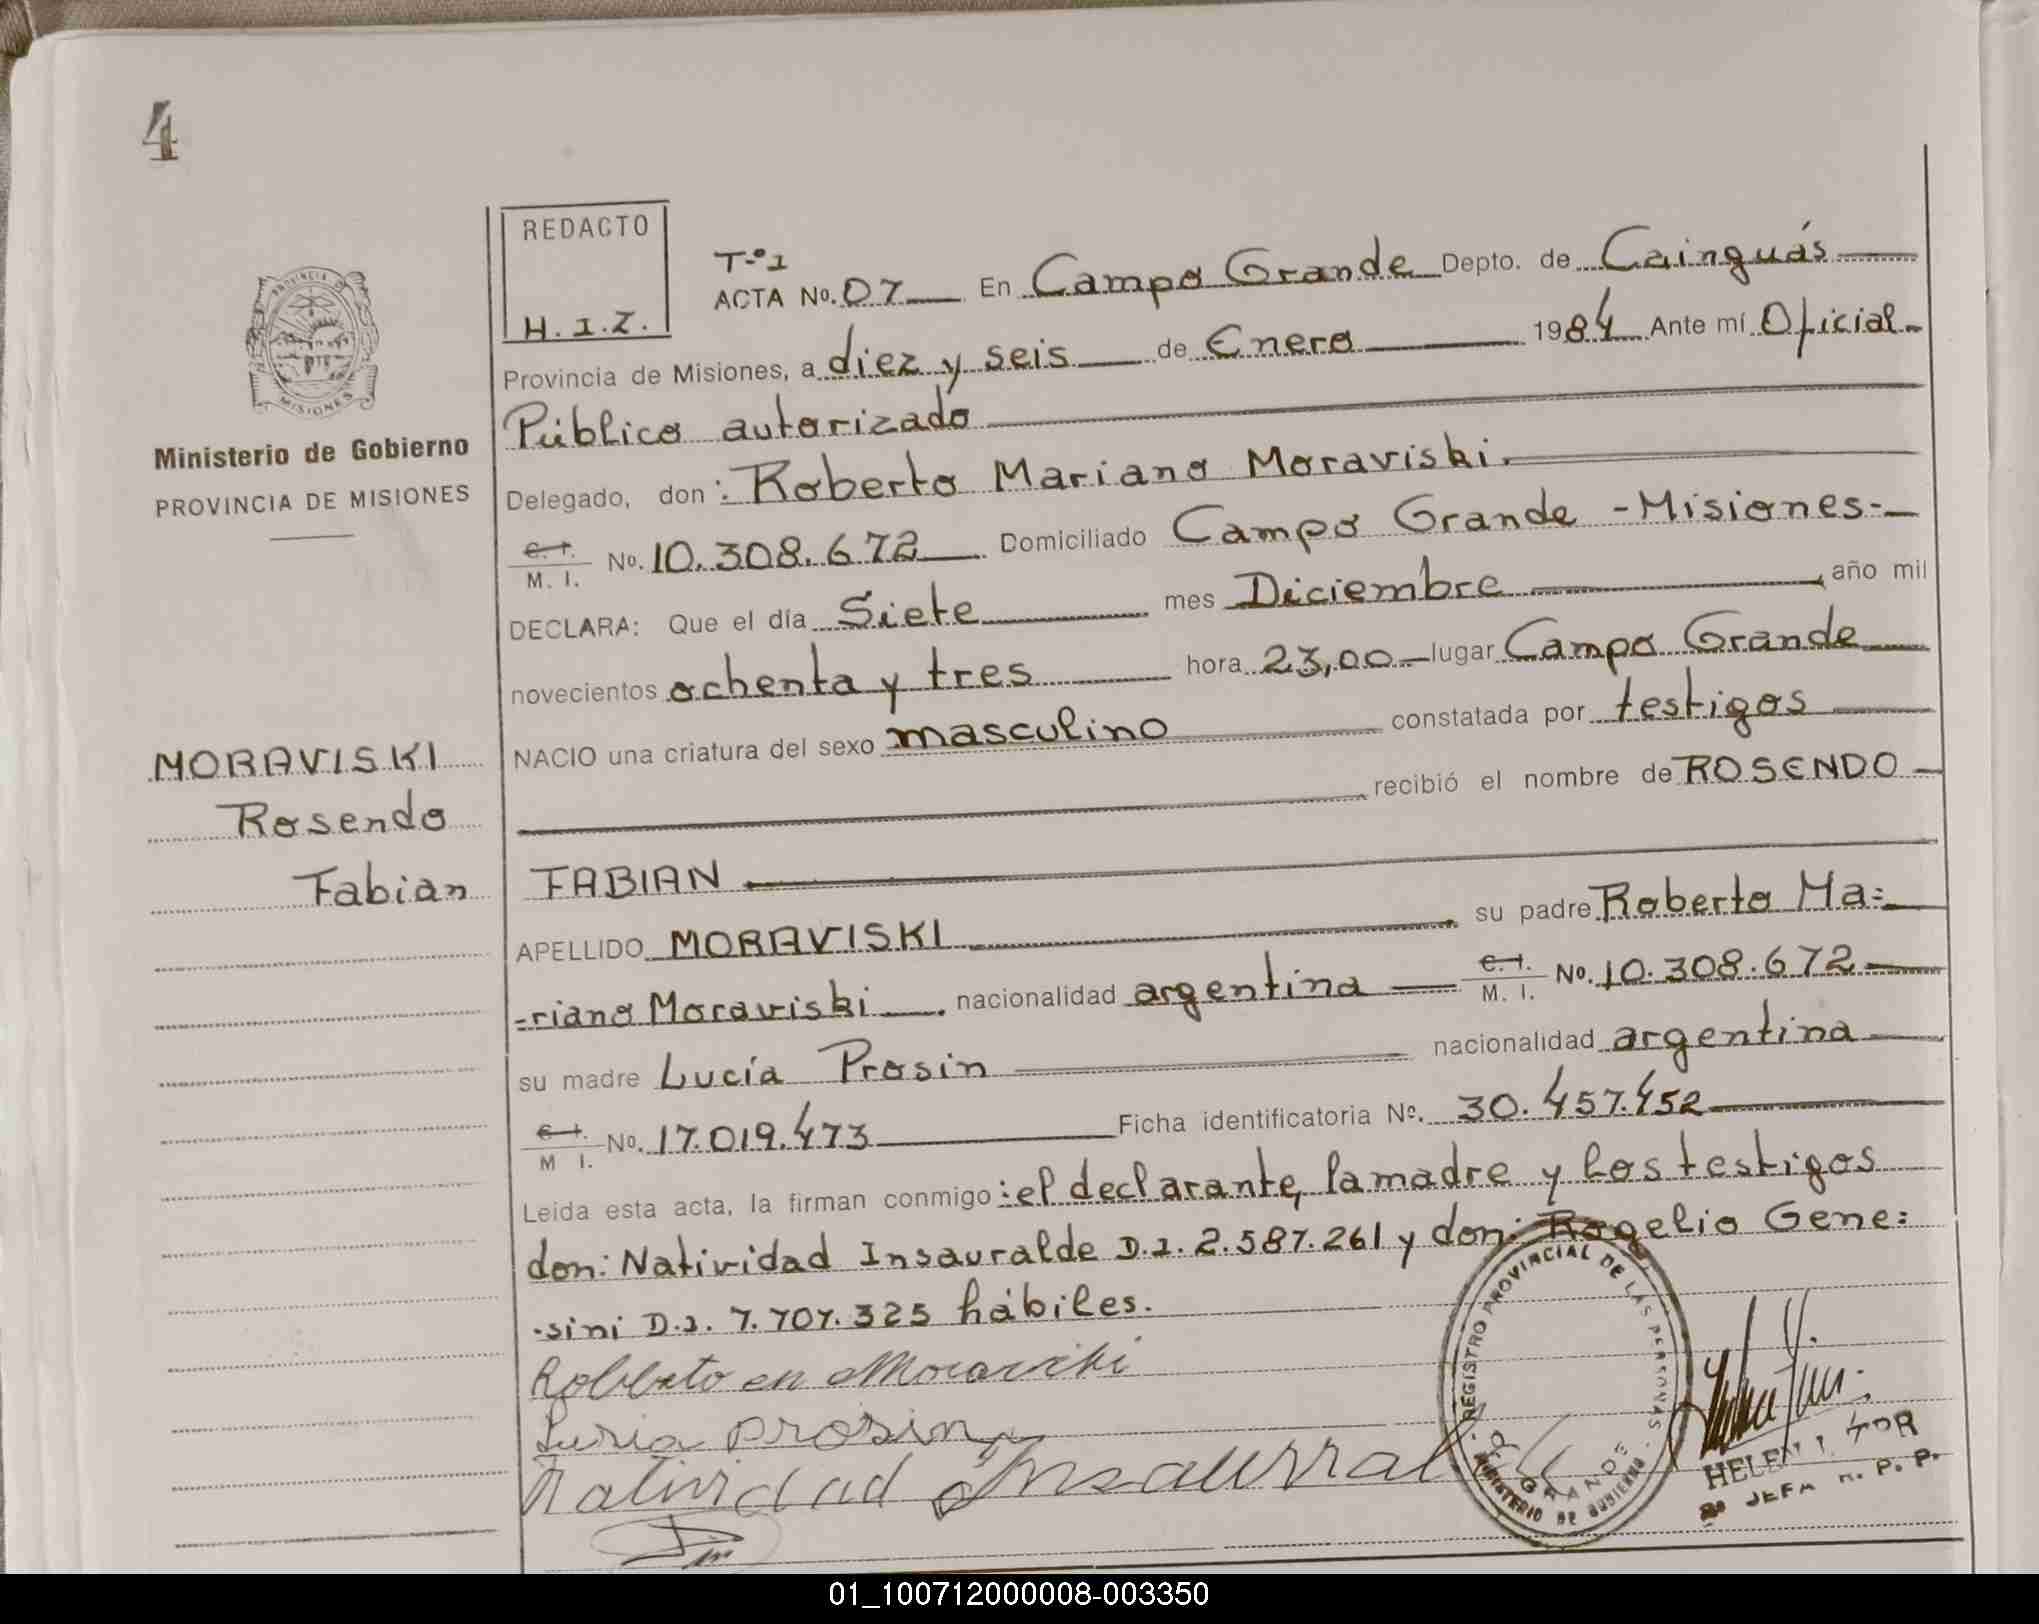 4
REDACTO
H.I.Z.
PROVINCIA DE
MISIONES
Ministerio de Gobierno
PROVINCIA DE MISIONES
MORAVISKI
Rosendo
Fabian
T-º1
ACTA No. 07 En Campo Grande Depto. de Cainguás
Provincia de Misiones, a diez y seis de Enero 1984 Ante mí Oficial
Público autorizado
Delegado, don: Roberto Mariano Moraviski.
C. I.
M. I. No. 10.308.672 Domiciliado Campo Grande - Misiones-
DECLARA: Que el día Siete mes Diciembre, año mil
novecientos ochenta y tres hora 23,00 lugar Campo Grande
NACIO una criatura del sexo masculino constatada por testigos
recibió el nombre de ROSENDO
FABIAN
APELLIDO MORAVISKI su padre Roberto Ma=
-riano Moraviski. nacionalidad argentina C. I. M. I. No. 10.308.672
su madre Lucía Prosin nacionalidad argentina
C. I.
M I. No. 17.019.473 Ficha identificatoria No. 30.457.452
Leida esta acta, la firman conmigo: el declarante, la madre y los testigos
don: Natividad Insauralde D.I. 2.587.261 y don: Rogelio Gene=
-sini D.I. 7.707.325 hábiles.
Moraviski
prosin
Natividad Insaurral
REGISTRO PROVINCIAL DE LAS PERSONAS
GRANDE
MINISTERIO DE GOBIERNO
HELEN
2º JEFA R. P. P.
01_100712000008-003350